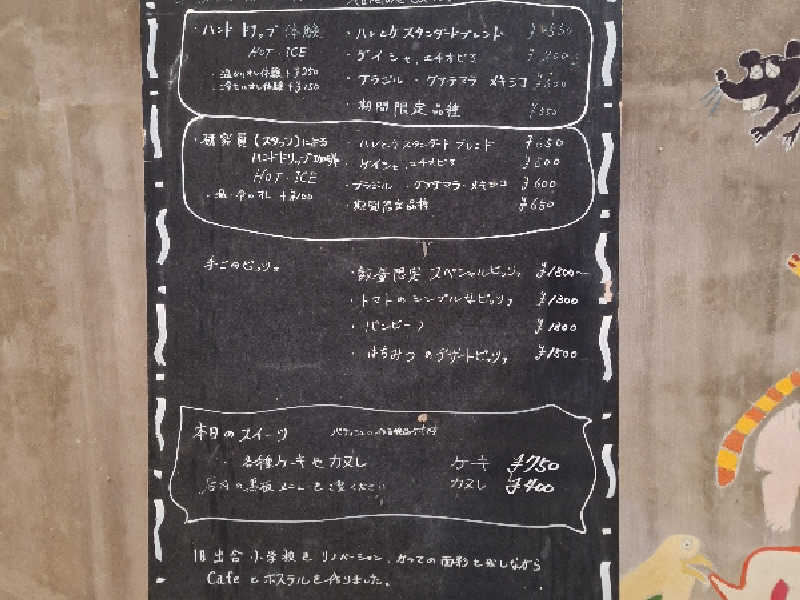 ・ハンドドリップ体験 ・ハレとケスタンダードブレンド
HOT・ICE ・ゲイシャ、エチオピア
・ブラジル・グアテマラ・メキシコ
・期間限定品種 ¥350
・研究員(スタッフ)による ・ハレとケスタンダードブレンド ¥650
ハンドドリップ珈琲 ・ゲイシャ、エチオピア ¥800
HOT・ICE ・ブラジル・グアテマラ・メキシコ ¥600
・期間限定品種 ¥650
・数量限定 スペシャルピッツァ ¥1800〜
・トマトのシンプルなピッツァ ¥1300
・バンビーノ ¥1800
・はちみつのデザートピッツァ ¥1500
本日のスイーツ
・各種ケーキやカヌレ ケーキ ¥750
店内の黒板メニューをご覧ください カヌレ ¥400
旧出合小学校をリノベーション、かつての面影を残しながら
Cafeとホステルを作りました。